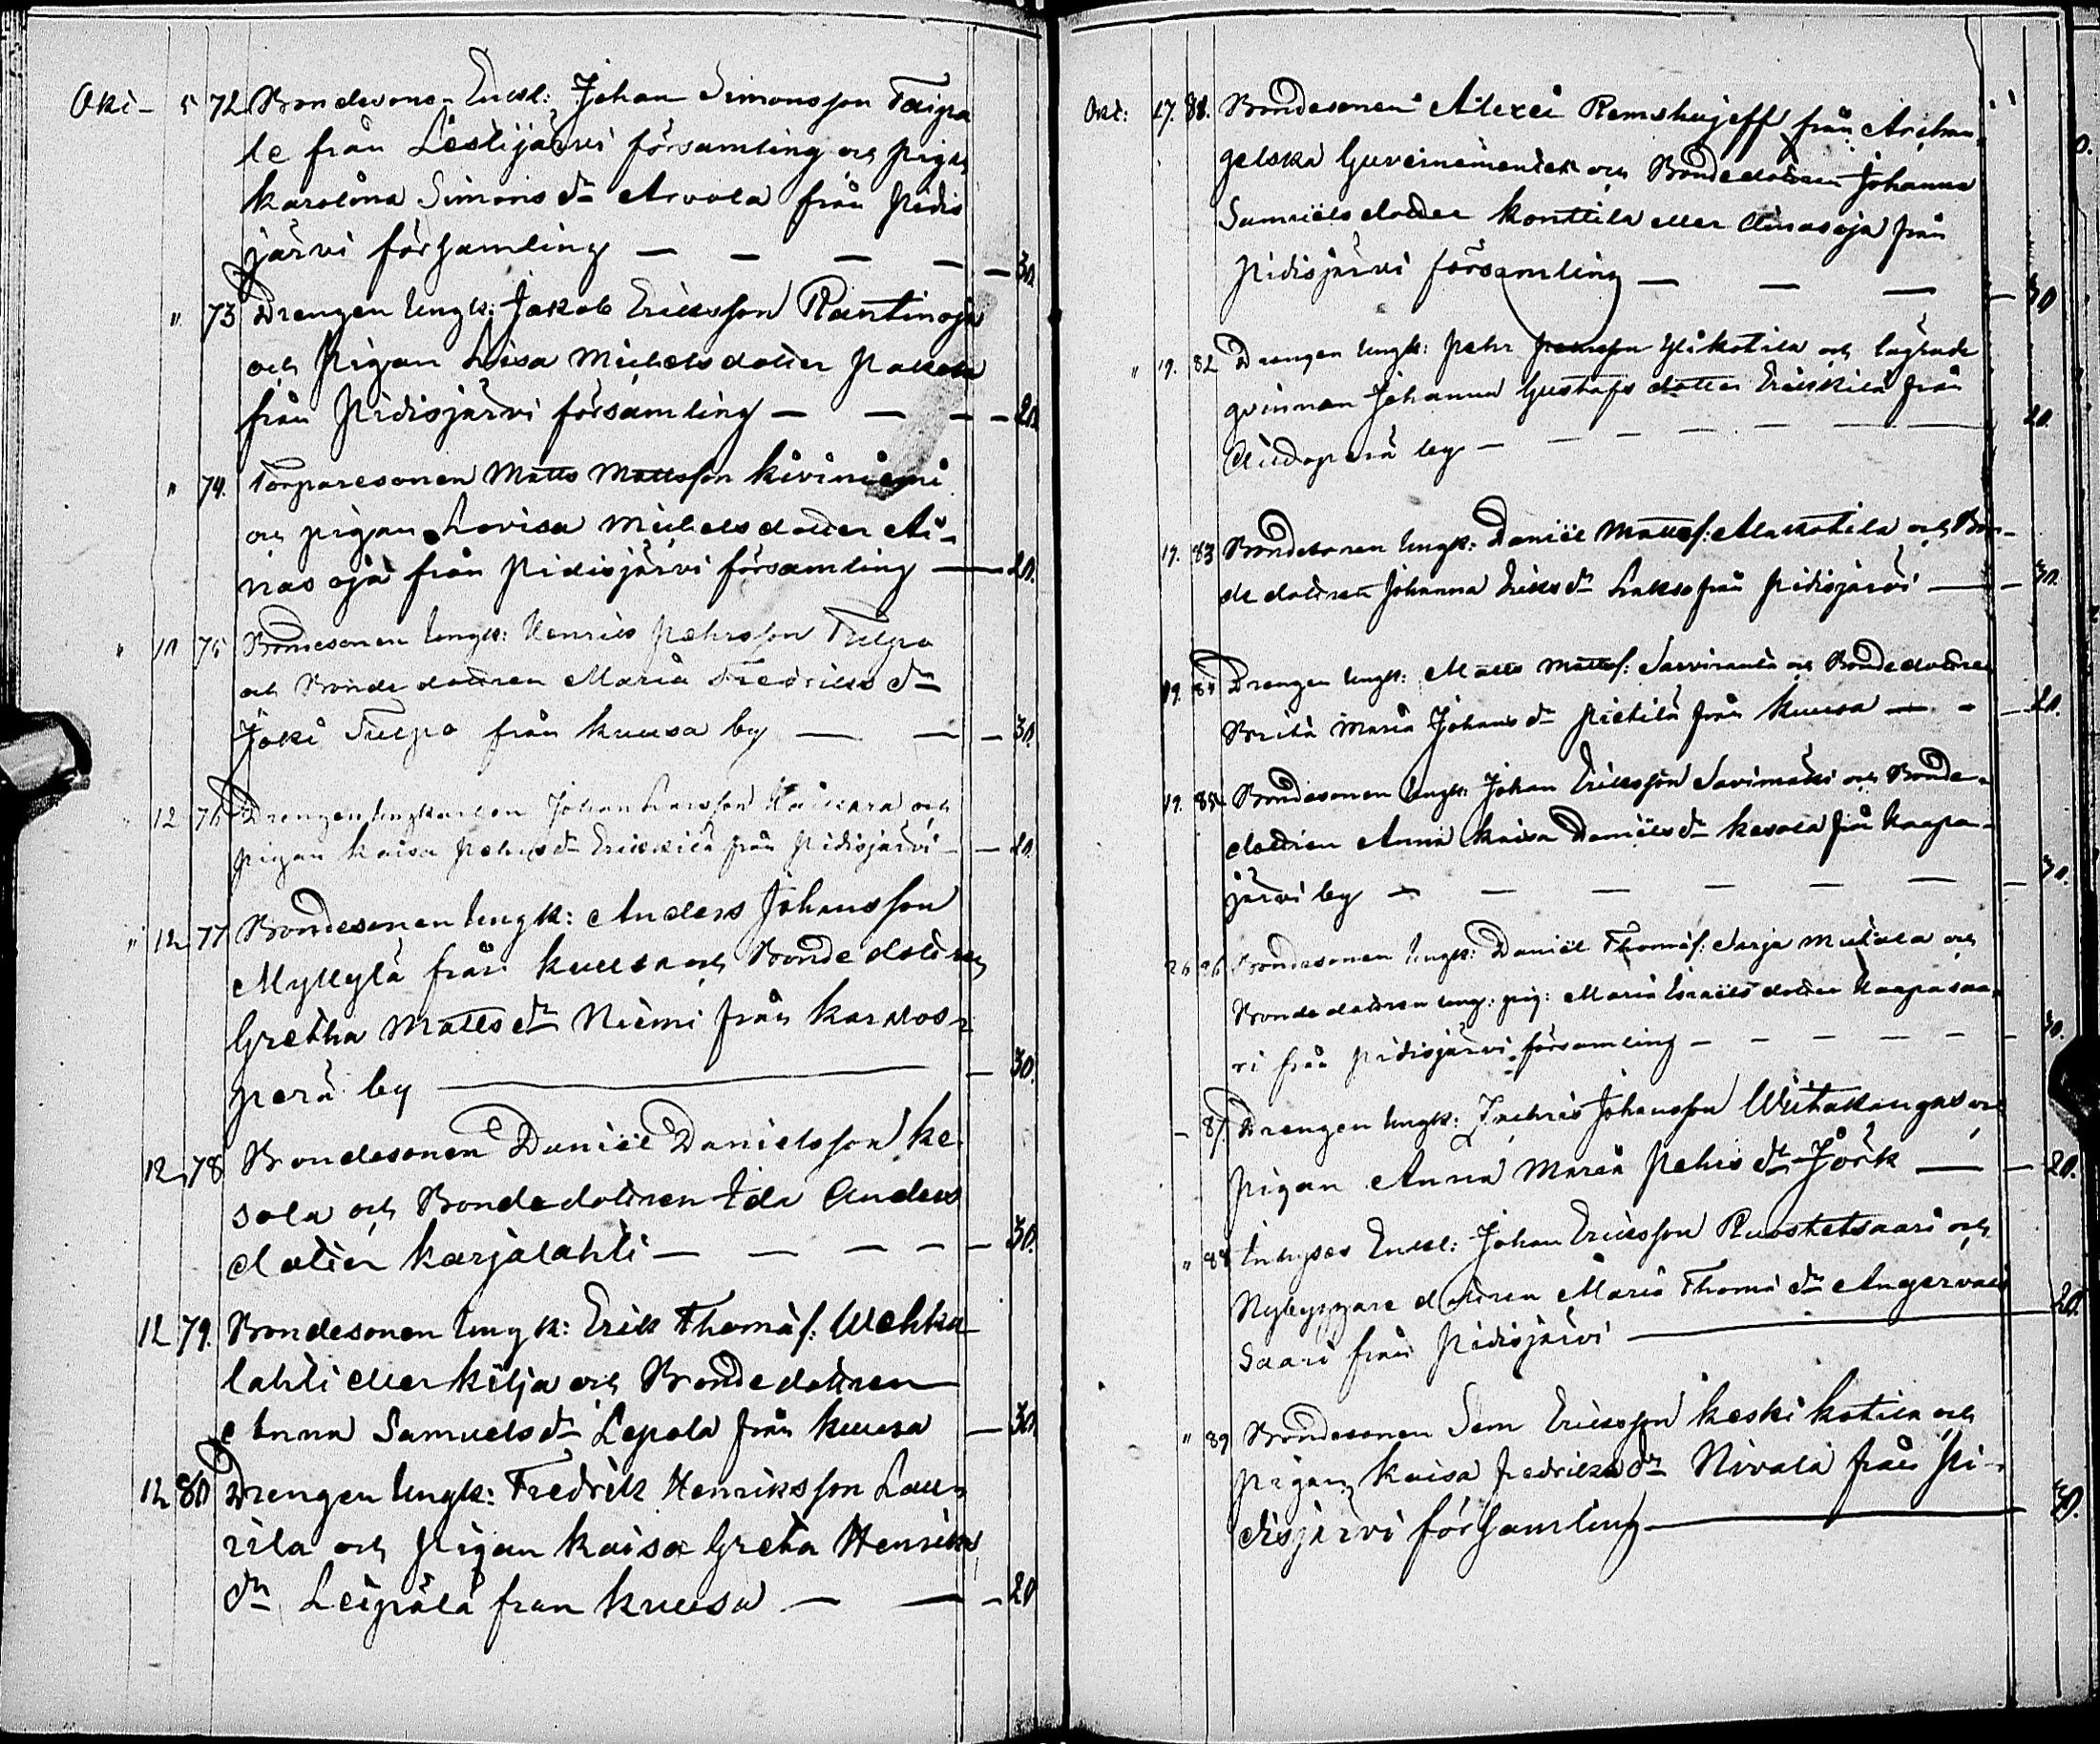 Okt- 5 72 Bondesonen Enkl: Johan Simonsson Taipa
le från Lestijärvi församling och pigan
Karolina Simons dr Arvola från Pidis
järvi församling — — — — — 30.
" 73 Drengen Ungk: Jakob Ericsson Rantinoja
och Pigan Lisa Michelsdotter
från Pidisjärvi församling — — — — 20.
" 74. Torparesonen Matts Mattsson Kiviniemi
och pigan Lovisa Michelsdotter Ai-
nas oja från Pidisjärvi församling — 20.
" 10 75 Bondesonen Ungk: Henrics Pehrsson Tulpo
och Bondedottren Maria Fredriks dr
Joki Tulpo från Kuusa by — — — 30.
" 12 76 Drengen Ungkarlen Johan Larsson och
pigan Kaisa Pehrs dr Erickilä från Pidisjärvi — — 20.
" 12 77 Bondesonen Ungk: Anders Johansson
Myllylä från Kuusa och Bondedottren
Gretha Matts dr Niemi från Karvos-
perä by — — 30.
12 78 Bondesonen Daniel Danielsson Ke-
sola och Bondedottren Ida Anders
dotter Karjalahti — — — — — 30.
12 79. Bondesonen Ungk: Erik Thomæs: Wehka-
lahti eller Kilja och Bondedottren
Anna Samuels dr Lepola från Kuusa — 30
12 80 Drengen Ungk: Fredrik Henriksson Lau-
rila och Pigan Kaisa Greta Henriks
dr Leipälä från Kuusa — — — 20
Okt: 17. 81. Bondesonen Alexei Remshujeff från Archan-
gelska Guvernementet och Bondedottren Johanna
Samuelsdotter Konttila eller Ainasoja från
Pidisjärvi församling — — — — 30
" 19. 82 Drengen Ungk: Pehr Pehrsson Ylikotila och lägrade
qvinnan Johanna Gustafs dotter Erickilä från
Aidasperä by — — — — — — 20.
19. 83 Bondesonen Ungk: Daniel Mattss: Alakotila och Bon-
dedottren Johanna Ericsdr Laakso från Pidisjärvi — — 30.
19. 84 Drengen Ungk: Matts Mattss: Sarviranta och Bondedottren
Brita Maria Johans dr Pietilä från Kuusa — — — 20.
19. 85 Bondesonen Ungk: Johan Ericsson Savimäki och Bonde-
dottren Anna Kaisa Daniels dr Kesola från Haapa-
järvi by — — — — — — — 30.
26 86 Bondesonen Ungk: Daniel Thomæs: Sarja och
Bondedottren Ung: pig: Maria Israelsdotter Haapasaa-
ri från Pidisjärvi församling — — — — — — 30.
— 87 Drengen Ungk: Fredric Johansson Wiitakangas och
Pigan Anna Maria Pehrs dr Jörk — — 20.
" 88 Inhyses Enkl: Johan Ericsson Ruostetsaari och
Nybyggare dottren Maria Thomæ dr Angervas
Saari från Pidisjärvi — 20.
" 89 Bondesonen Sem Ericsson Keskikotila och
pigan Kaisa Fredriks dr Nivala från Pi-
disjärvi församling — 30.